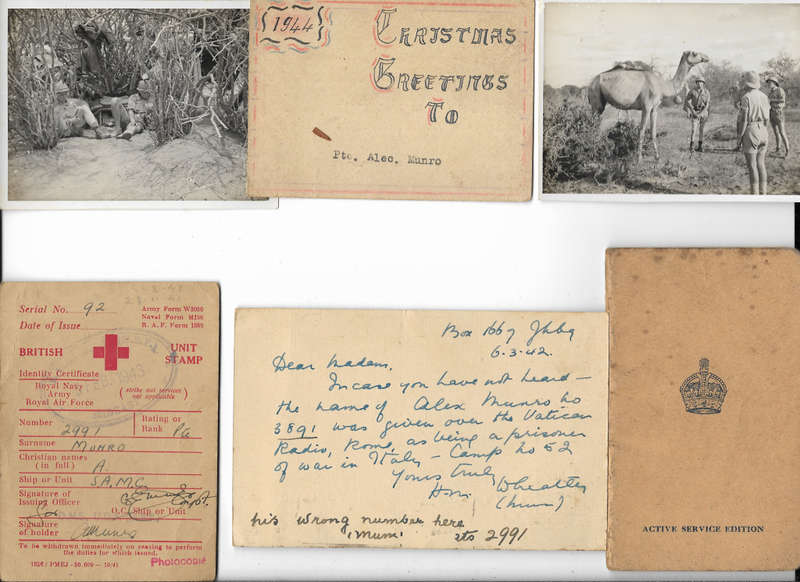 1944
CHRISTMAS
GREETINGS
TO
Pte. Alec. Munro
Serial No. 92
Army Form W3050
Naval Form M196
R.A.F. Form 1380
Date of Issue
BRITISH
UNIT
STAMP
Identity Certificate
Royal Navy
Army
Royal Air Force
(strike out services
not applicable)
Number 2991
Rating or
Rank Pte
Surname MUNRO
Christian names
(in full) A.
Ship or Unit S.A.M.C.
Signature of
Issuing Officer
Capt.
O.C. Ship or Unit
Signature
of holder AMunro
To be withdrawn immediately on ceasing to perform
the duties for which issued.
Photocopie
Box 1667 Jhbg
6.3.42.
Dear Madam,
In case you have not heard —
the name of Alex Munro No
3891 was given over the Vatican
Radio, Rome, as being a prisoner
of war in Italy — Camp No 52
Yours truly
Wheatley
(Mum)
his wrong number here
'Mum' its 2991
ACTIVE SERVICE EDITION